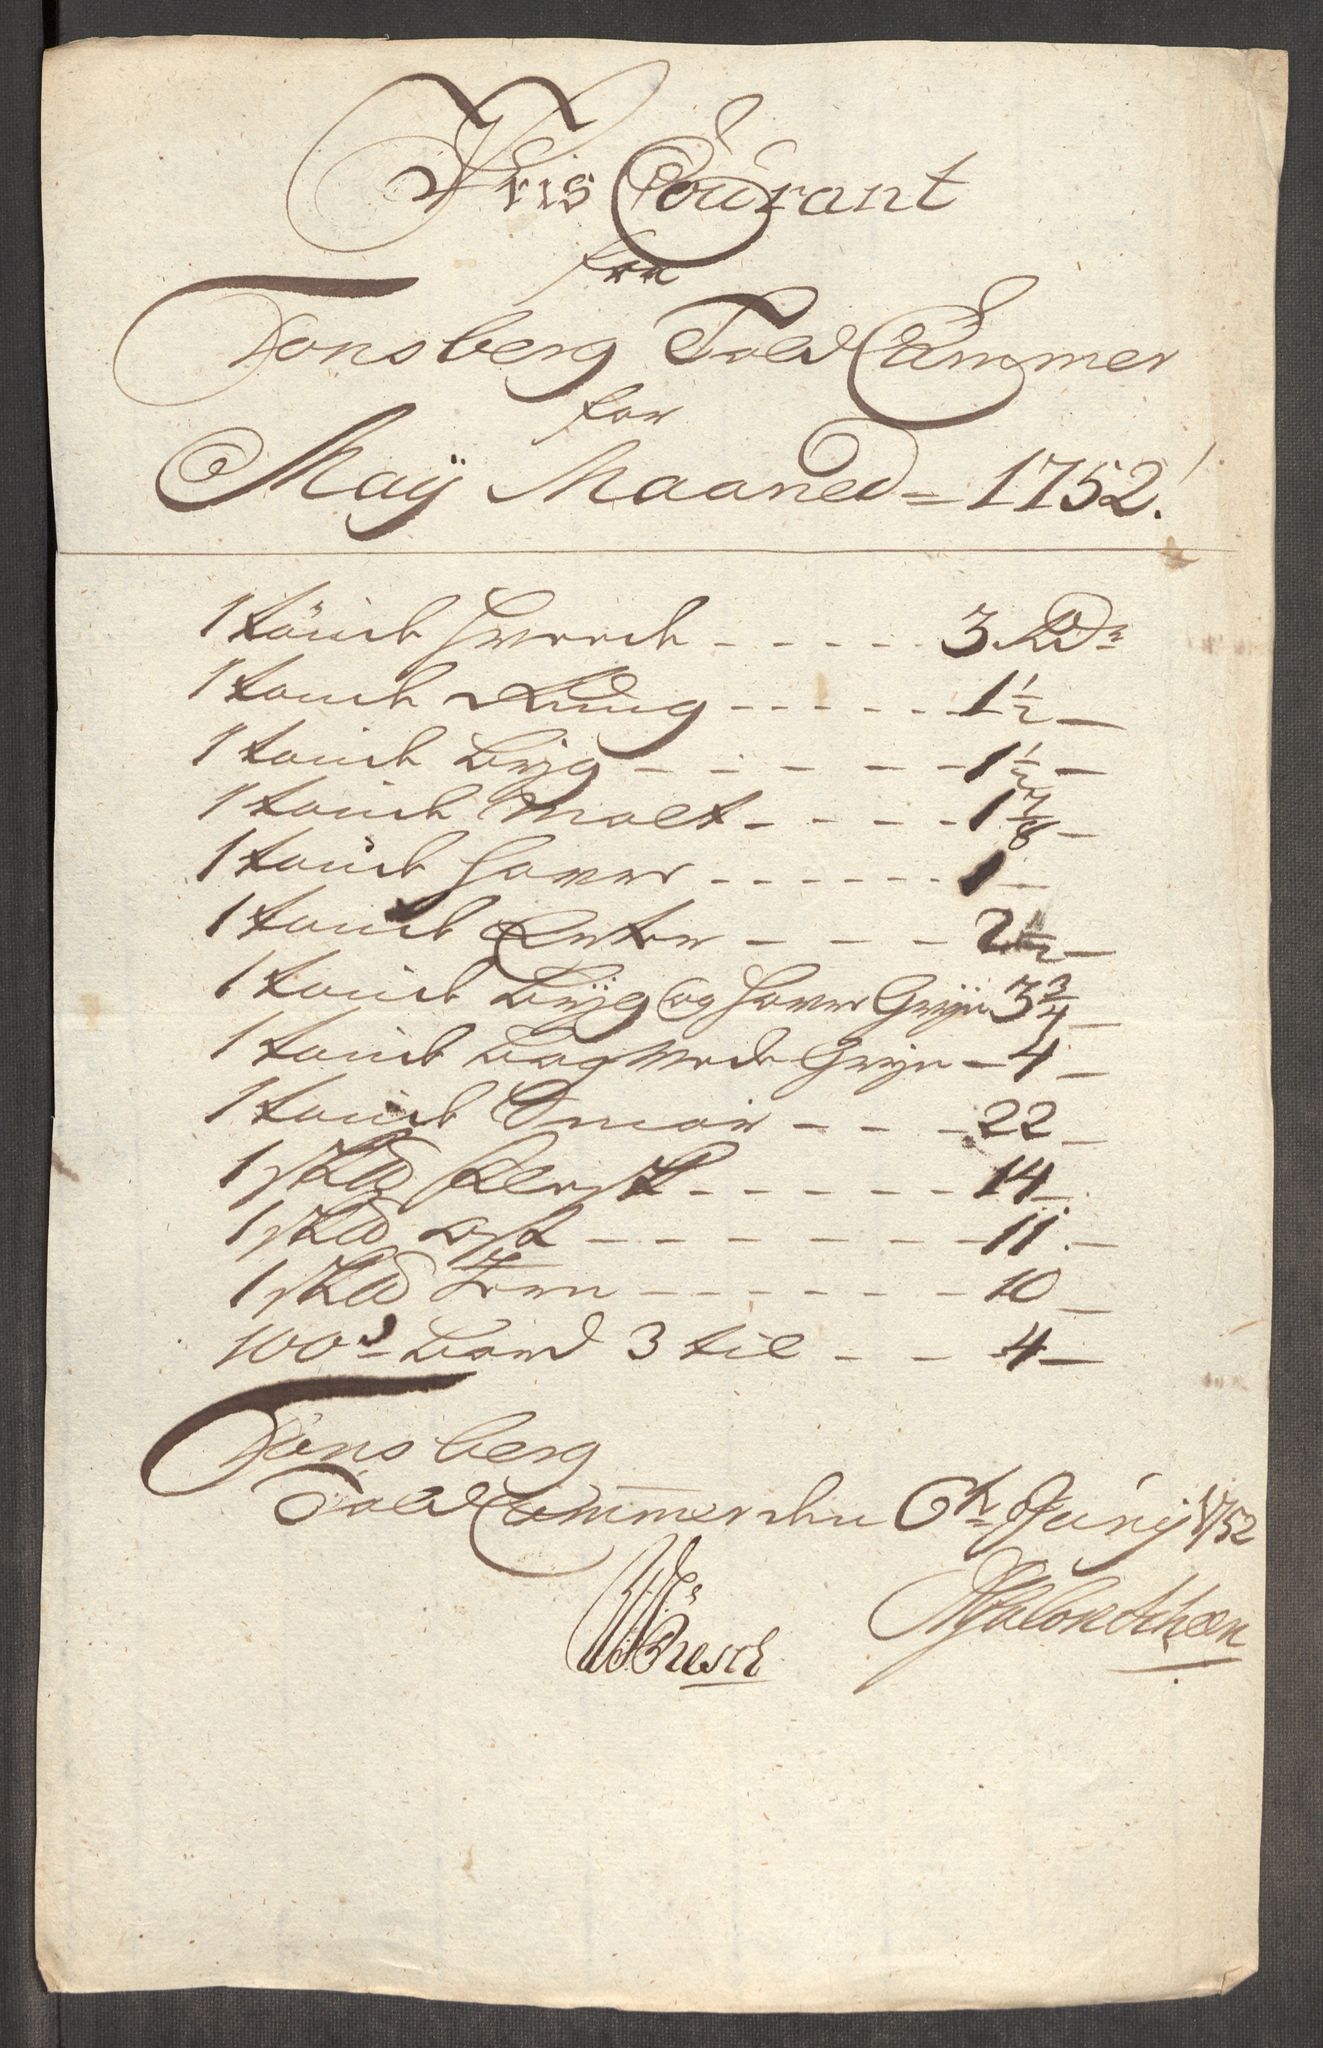 Pris Courant
fra
Tønsberg Told Cammer
for
Maÿ Maaned = 1752.
1 tønde Hveede - - - - - 3 Rdr
1 tønde Rug - - - - - - 1 1/2 -
1 tønde Byg - - - - - - 1 1/2 -
1 tønde Malt - - - - - 1 7/8 -
1 tønde Haver - - - - - - 1 -
1 tønde Erter - - - - 2 1/2 -
1 tønde Byg og Haver Gryn 3 3/4 -
1 tønde Boghvede Gryn - 4 -
1 tønde Smør - - - 22 -
1 sk℔ flesk - - - - - - 14 -
1 sk℔ ost - - - - - - - 11 -
1 sk℔ Jern - - - - - - 10 -
100d Bord 3 til - - - 4 -
Tønsberg
Told Cammer den 6te Junij 1752